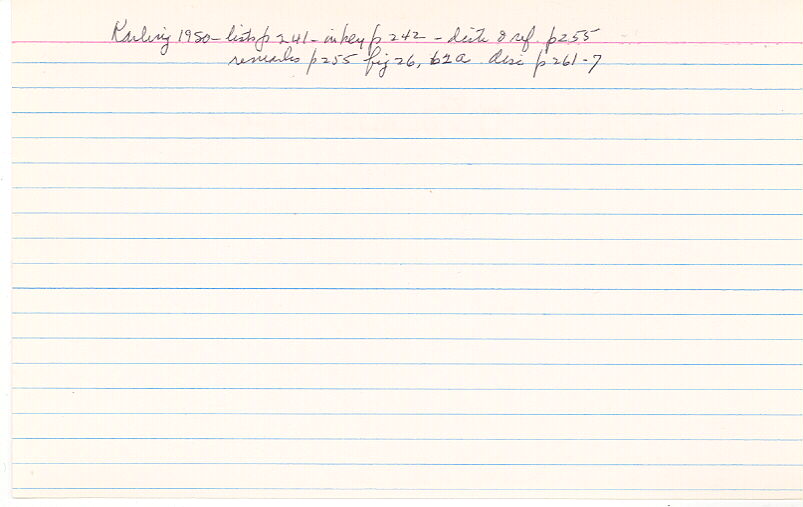 Karling 1950 - lists p 241 - in key p 242 - distr & ref p255
remarks p255 fig 26, 62a disc p 261-7